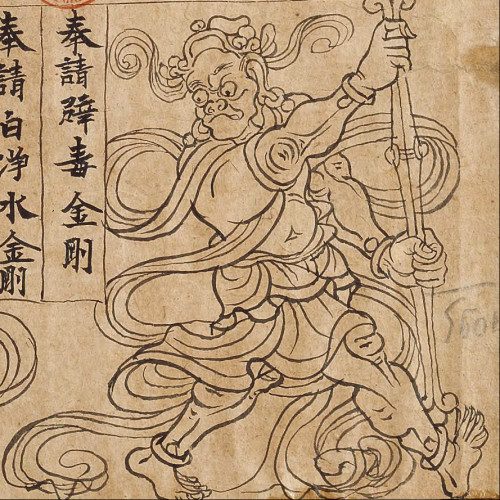 奉請辟毒金剛
奉請白淨水金剛